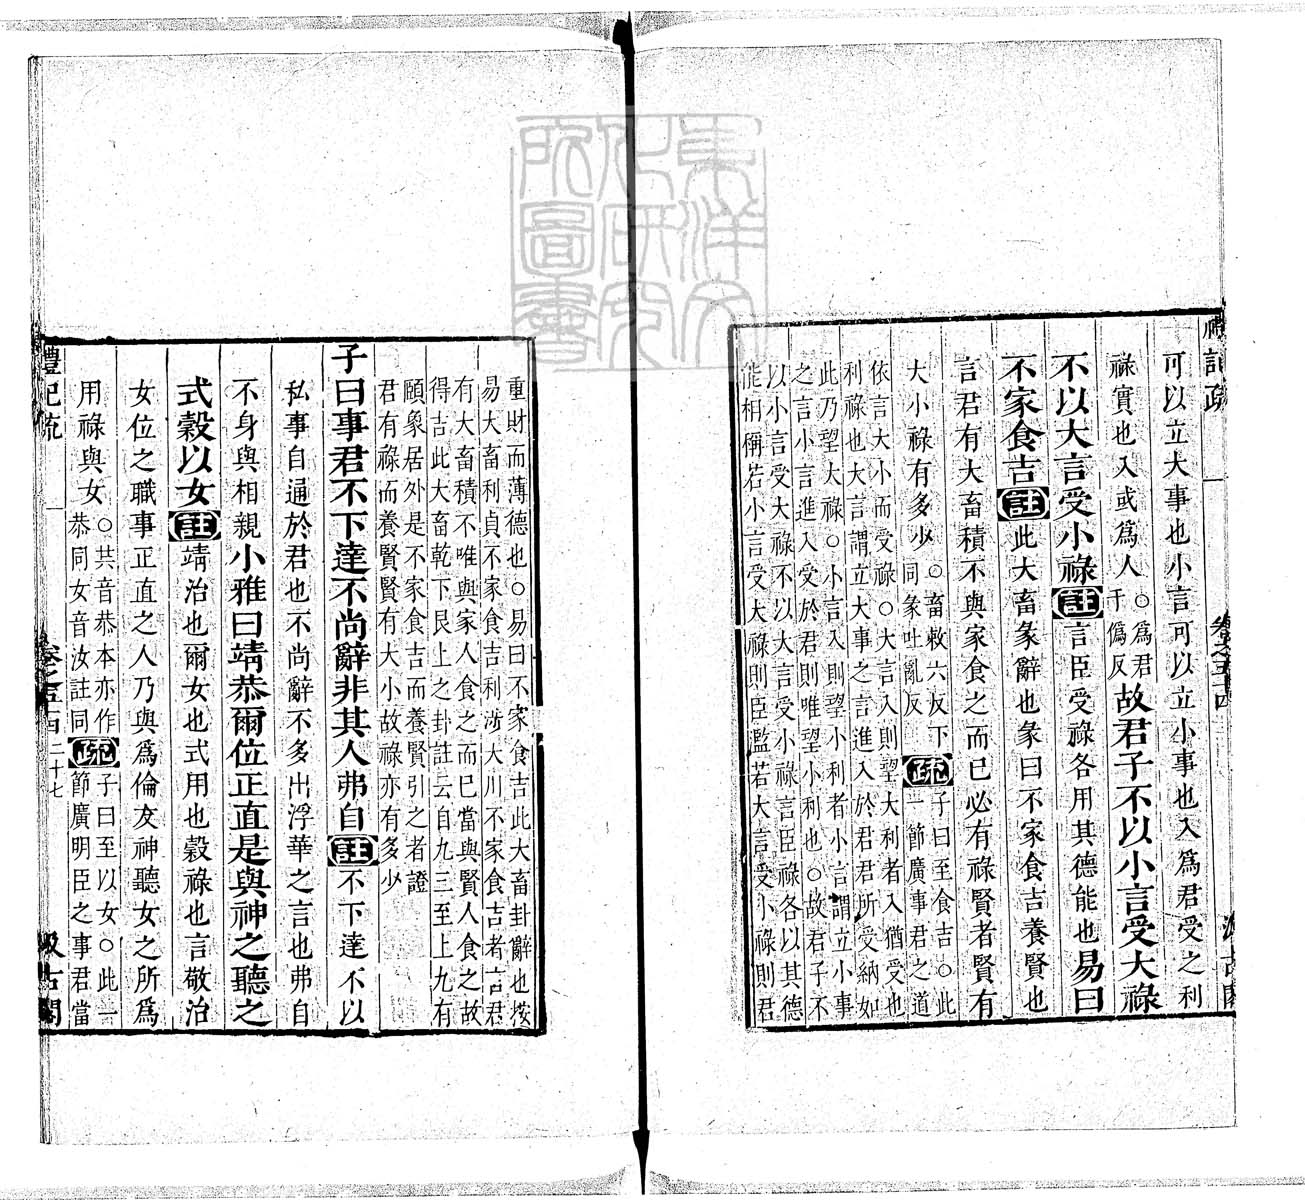 禮記疏
卷之五十四
汲古閣
可以立大事也小言可以立小事也入爲君受之利
祿實也入或爲人○爲君于僞反故君子不以小言受大祿
不以大言受小祿註言臣受祿各用其德能也易曰
不家食吉註此大畜彖辭也彖曰不家食吉養賢也
言君有大畜積不與家食之而已必有祿賢者賢有
大小祿有多少○畜敕六反下同彖吐亂反疏子曰至食吉○此一節廣事君之道
依言大小而受祿○大言入則望大利者入猶受也
利祿也大言謂立大事之言進入於君君所受納如
此乃望大祿○小言入則望小利者小言謂立小事
之言小言進入受於君則唯望小利也○故君子不
以小言受大祿不以大言受小祿言臣祿各以其德
能相稱若小言受大祿則臣濫若大言受小祿則君
重財而薄德也○易曰不家食吉此大畜卦辭也按
易大畜利貞不家食吉利涉大川不家食吉者言君
有大畜積不唯與家人食之而已當與賢人食之故
得吉此大畜乾下艮上之卦註云自九三至上九有
頤象居外是不家食吉而養賢引之者證
君有祿而養賢賢有大小故祿亦有多少
子曰事君不下達不尚辭非其人弗自註不下達不以
私事自通於君也不尚辭不多出浮華之言也弗自
不身與相親小雅曰靖恭爾位正直是與神之聽之
式穀以女註靖治也爾女也式用也穀祿也言敬治
女位之職事正直之人乃與爲倫友神聽女之所爲
用祿與女○共音恭本亦作恭同女音汝註同疏子曰至以女○此一節廣明臣之事君當
禮記疏
卷之五十四
二十七
汲古閣